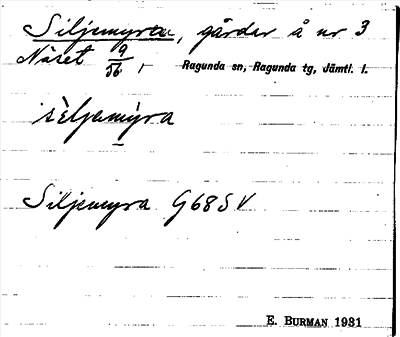 Siljemyren, gårdar å nr 3
Näset 9/56,
Ragunda sn, Ragunda tg, Jämtl. l.
sèljamy̱ra
Siljemyra G68SV
E. BURMAN 1931